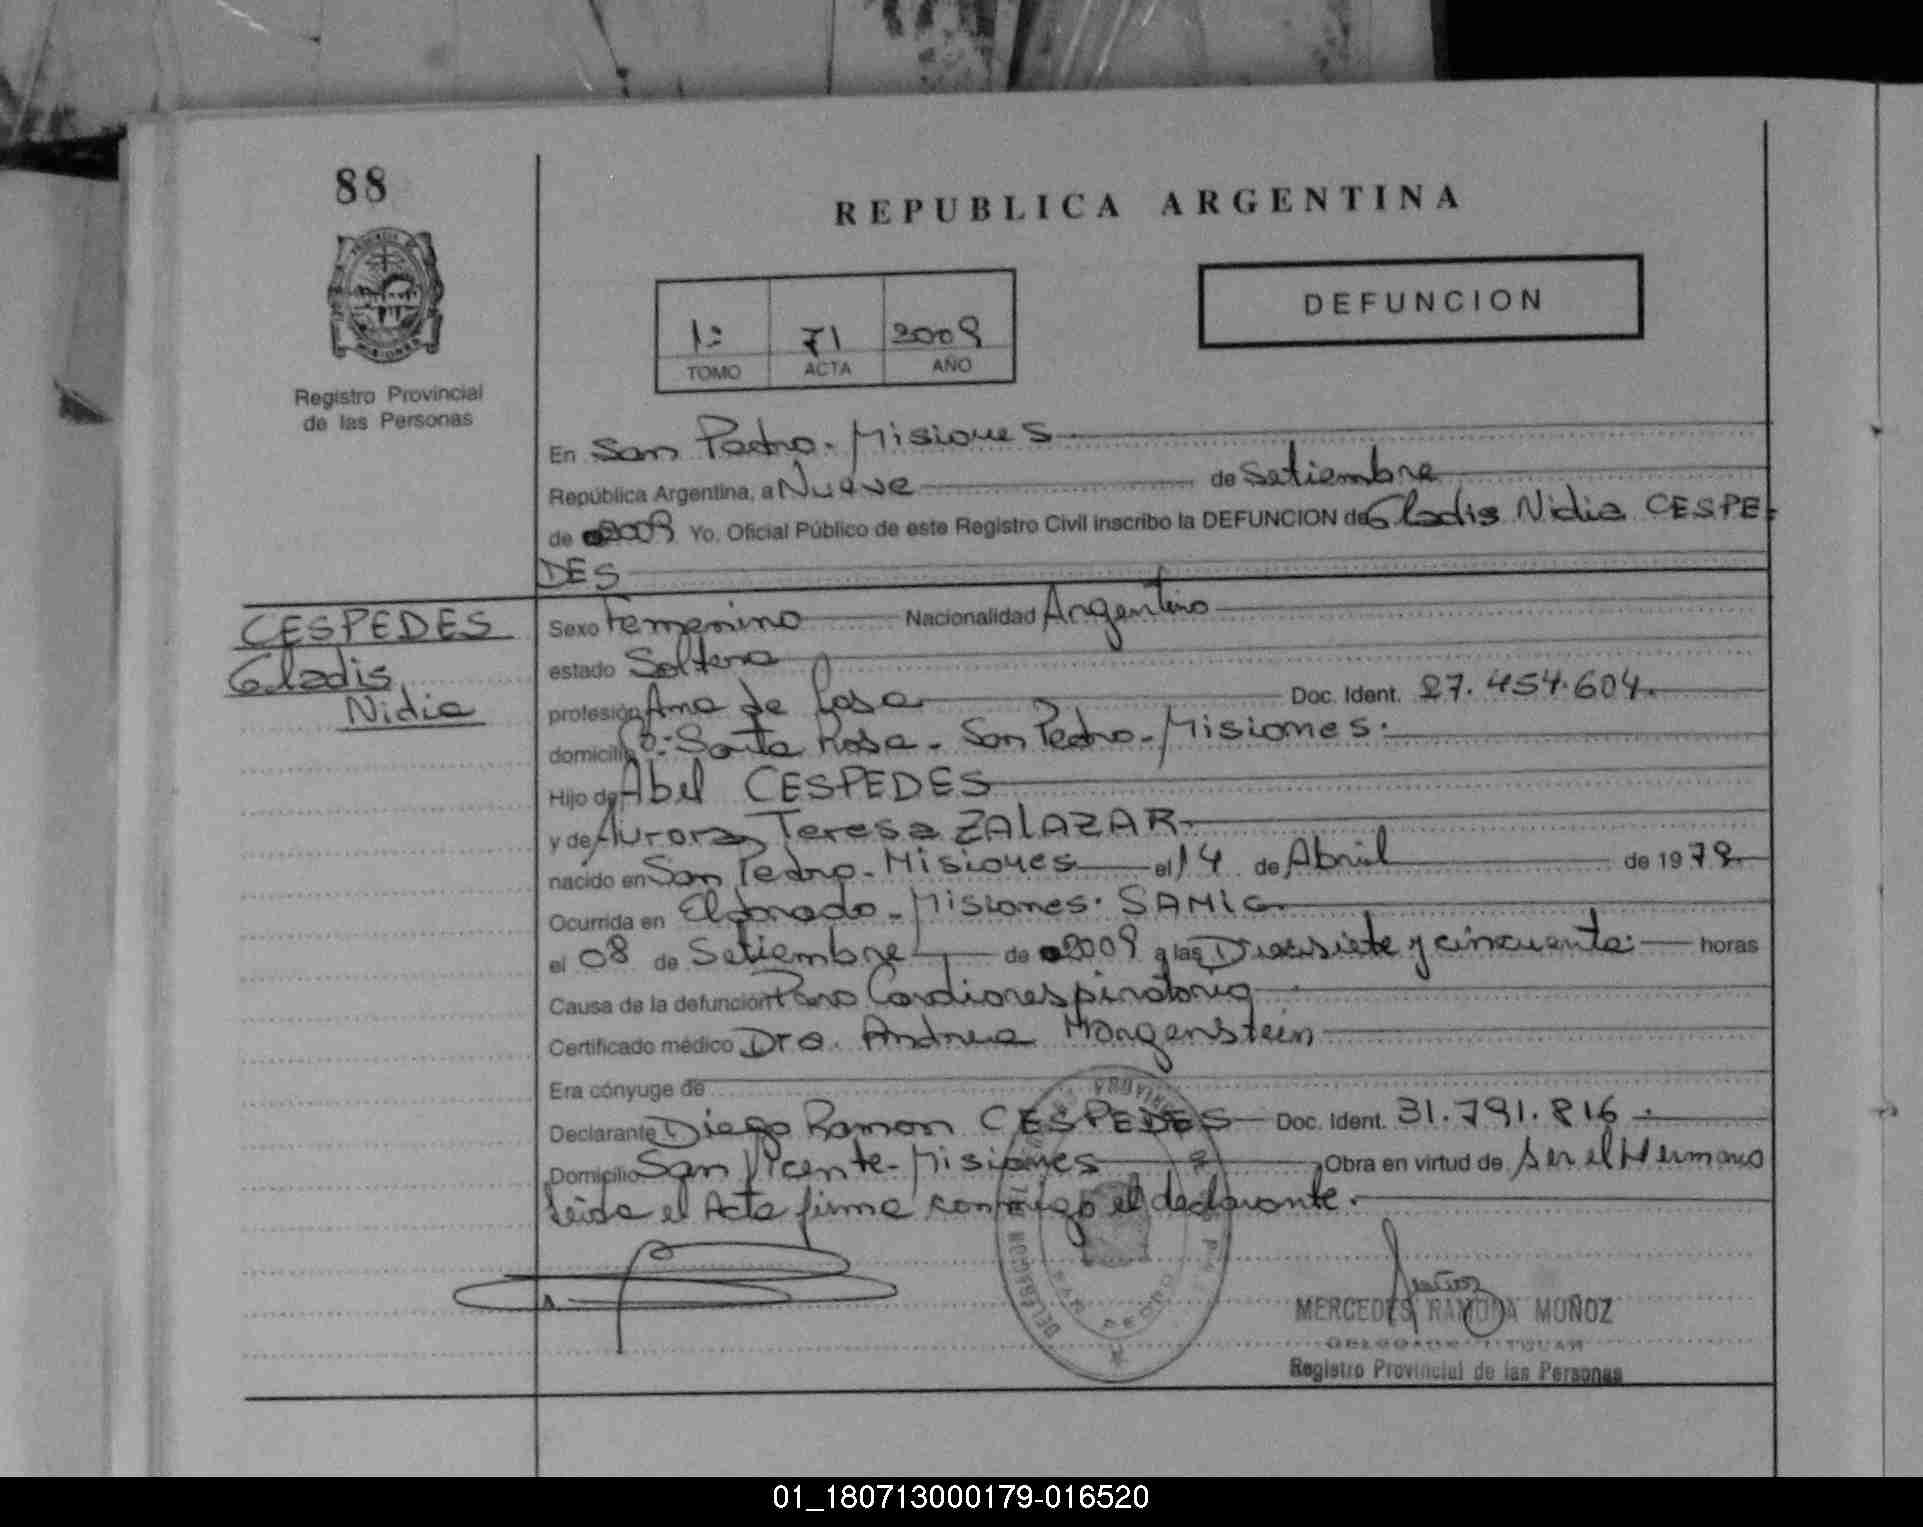 88
REPUBLICA ARGENTINA
DEFUNCION
1º 71 2009
TOMO ACTA AÑO
Registro Provincial
de las Personas
En San Pedro - Misiones
República Argentina, a Nueve de Setiembre
de 2009 Yo, Oficial Público de este Registro Civil inscribo la DEFUNCION de Gladis Nidia CESPE-
DES
CESPEDES
Gladis
Nidia
Sexo Femenino Nacionalidad Argentino
estado Soltera
profesión Ama de Casa Doc. Ident. 27.454.604.
domicilio Santa Rosa - San Pedro - Misiones.
Hijo de Abel CESPEDES
y de Aurora Teresa ZALAZAR
nacido en San Pedro - Misiones el 14 de Abril de 1979
Ocurrida en Eldorado - Misiones. SAMIC
el 08 de Setiembre de 2009 a las Diecisiete y cincuenta horas
Causa de la defunción Paro Cardiorespiratorio
Certificado médico Dra. Andrea Morgenstein
Era cónyuge de
Declarante Diego Ramon CESPEDES Doc. Ident. 31.791.816
Domicilio San Vicente - Misiones Obra en virtud de Ser el Hermano
Leida el Acta firma conmigo el declarante.
DELEGACION
SAN PEDRO
MERCEDES RAMONA MUÑOZ
DELEGADA TITULAR
Registro Provincial de las Personas
01_180713000179-016520